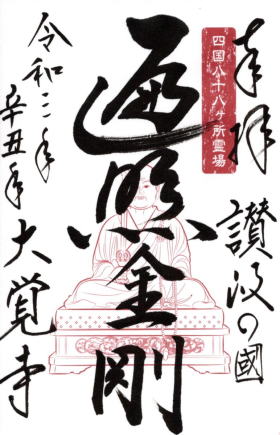 奉拝
讃岐の國
四国八十八ヶ所霊場
遍照金剛
令和三年
辛丑年
大覚寺